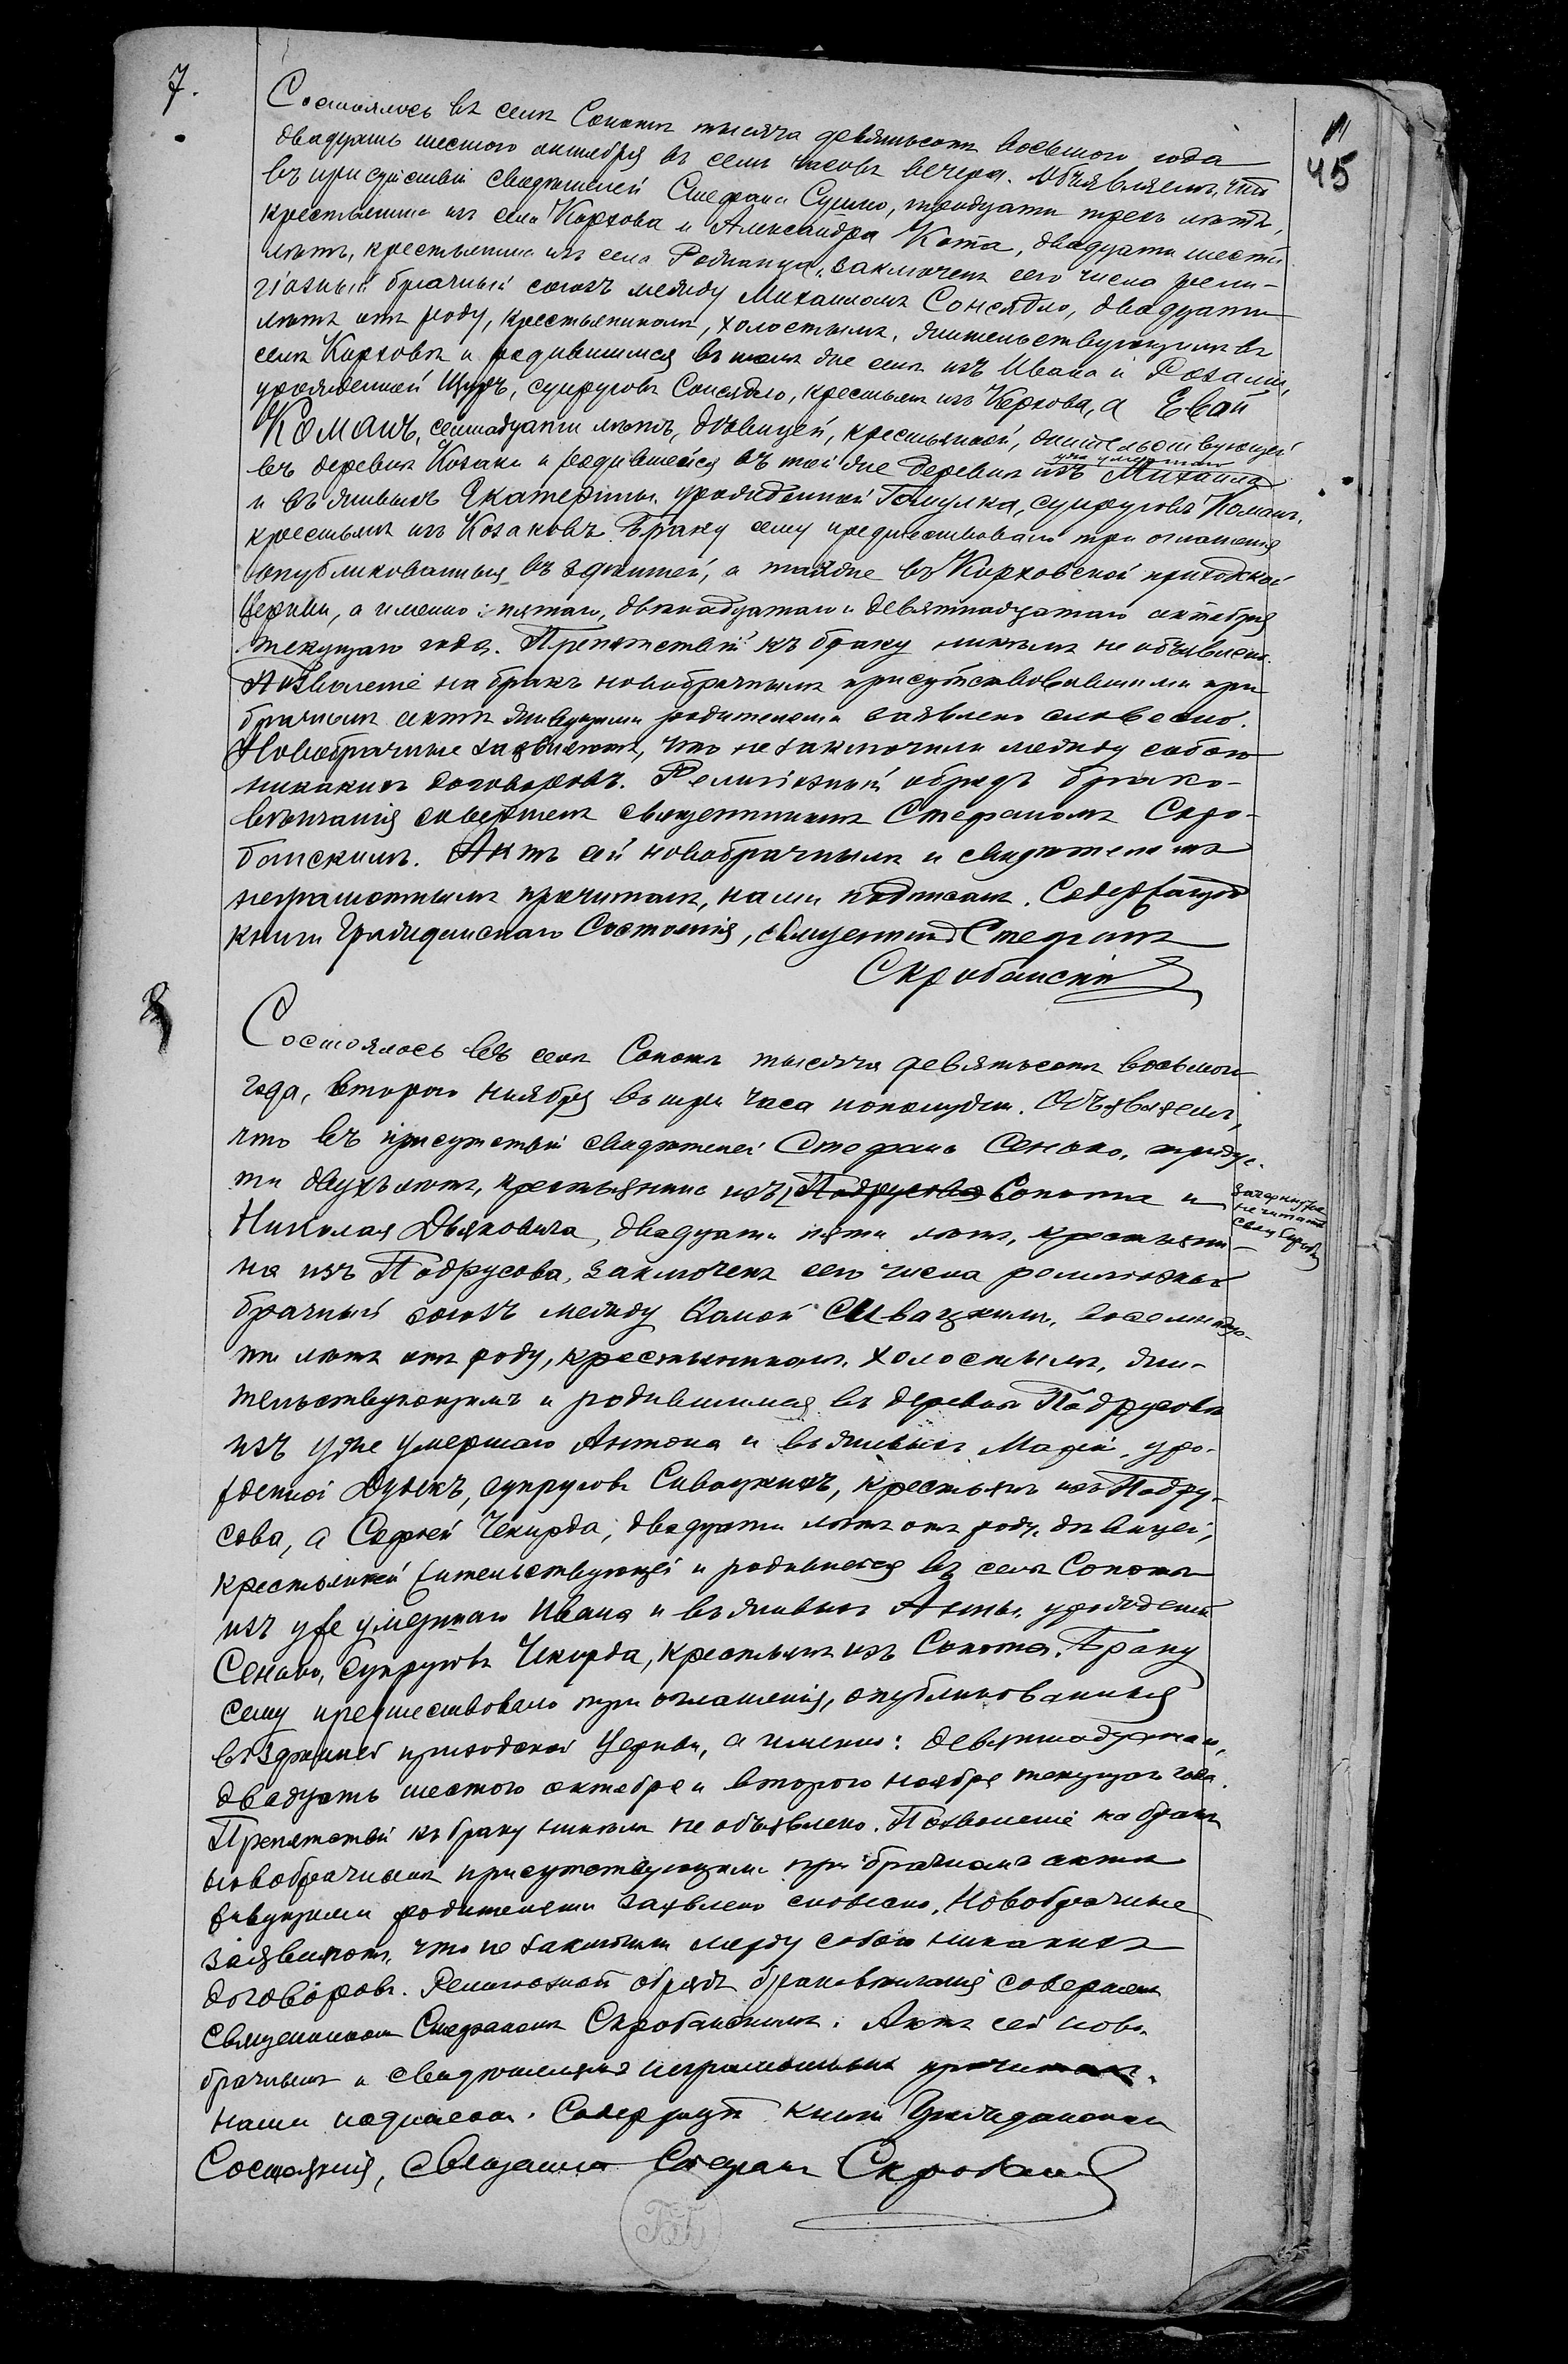 7.
11
45
Состоялось въ селѣ Сопотѣ тысяча девятьсотъ восьмого года
двадцать шестого октября въ семь часовъ вечера. Объявляемъ, что
въ присутствіи свидѣтелей Стефана Сушко, тридцати трехъ лѣтъ,
крестьянина изъ села Корхова и Александра Кота, двадцати шести
лѣтъ, крестьянина изъ села, заключенъ сего числа рели-
гіозный брачный союзъ между Михаиломъ Сонсядло, двадцати
лѣтъ отъ роду, крестьяниномъ, холостымъ, жительствующимъ въ
селѣ Корховѣ и родившимся въ томъ же селѣ изъ Ивана и Розаліи,
урожденной Щуръ, супруговъ Сонсядло, крестьянъ изъ Корхова, а Евой
Команъ, семнадцати лѣтъ, дѣвицей, крестьянкой, жительствующей
въ деревнѣ Козаки и родившейся въ той же деревнѣ изъ уже умершаго Михаила
и въ живыхъ Екатерины, урожденной Гомулка, супруговъ Команъ,
крестьянъ изъ Козаковъ. Браку сему предшествовало три оглашенія
опубликованныя въ здѣшней, а также въ Корховской приходской
Церкви, а именно: пятаго, двѣнадцатаго и девятнадцатаго октября
текущаго года. Препятствій къ браку никѣмъ не объявлено.
Позволеніе на бракъ новобрачнымъ присутствовавшими при
брачномъ актѣ живущими родителями заявлено словесно.
Новобрачные заявляютъ, что не заключили между собою
никакихъ договоровъ. Религіозный обрядъ брако-
вѣнчанія совершенъ священникомъ Стефаномъ Скро-
банскимъ. Актъ сей новобрачнымъ и свидѣтелямъ
неграмотнымъ прочитанъ, нами подписанъ. Содержащій
книги Гражданскаго Состоянія, священникъ Стефанъ
Скробанскій
8
Состоялось въ селѣ Сопотѣ тысяча девятьсотъ восьмого
года, второго ноября въ три часа пополудни. Объявляемъ,
что въ присутствіи свидѣтелей Стефана Сенько, тридца-
ти двухъ лѣтъ, крестьянина изъ Подрусова Сопота и
зачеркнутое
не читать
свящ Скроб
Николая Дьяковича, двадцати пяти лѣтъ, крестьяни-
на изъ Подрусова, заключенъ сего числа религіозный
брачный союзъ между Сивацкимъ, восемнадца-
ти лѣтъ отъ роду, крестьяниномъ, холостымъ, жи-
тельствующимъ и родившимся въ деревнѣ Подрусовѣ
изъ уже умершаго Антона и въ живыхъ Маріи, уро-
жденной, супруговъ Сивацкихъ, крестьянъ изъ Подру-
сова, а Софіей Чекирда, двадцати лѣтъ отъ роду, дѣвицей,
крестьянкой жительствующей и родившейся въ селѣ Сопотѣ
изъ уже умершаго Ивана и въ живыхъ Анны, урожденной
Сенько, супруговъ Чекирда, крестьянъ изъ Сопота. Браку
сему предшествовало три оглашенія, опубликованныя
въ здѣшней приходской Церкви, а именно: девятнадцатаго,
двадцать шестого октября и второго ноября текущаго года.
Препятствій къ браку никѣмъ не объявлено. Позволеніе на бракъ
новобрачнымъ присутствующими при брачномъ актѣ
живущими родителями заявлено словесно. Новобрачные
заявляютъ, что не заключили между собою никакихъ
договоровъ. Религіозный обрядъ браковѣнчанія совершенъ
священникомъ Стефаномъ Скробанскимъ. Актъ сей ново-
брачнымъ и свидѣтелямъ неграмотнымъ прочитанъ,
нами подписанъ. Содержащій книги Гражданскаго
Состоянія, священникъ Стефанъ Скробанскій